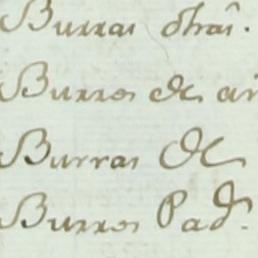 Burras otras.
Burros de añ
Burras de
Burros Pad.